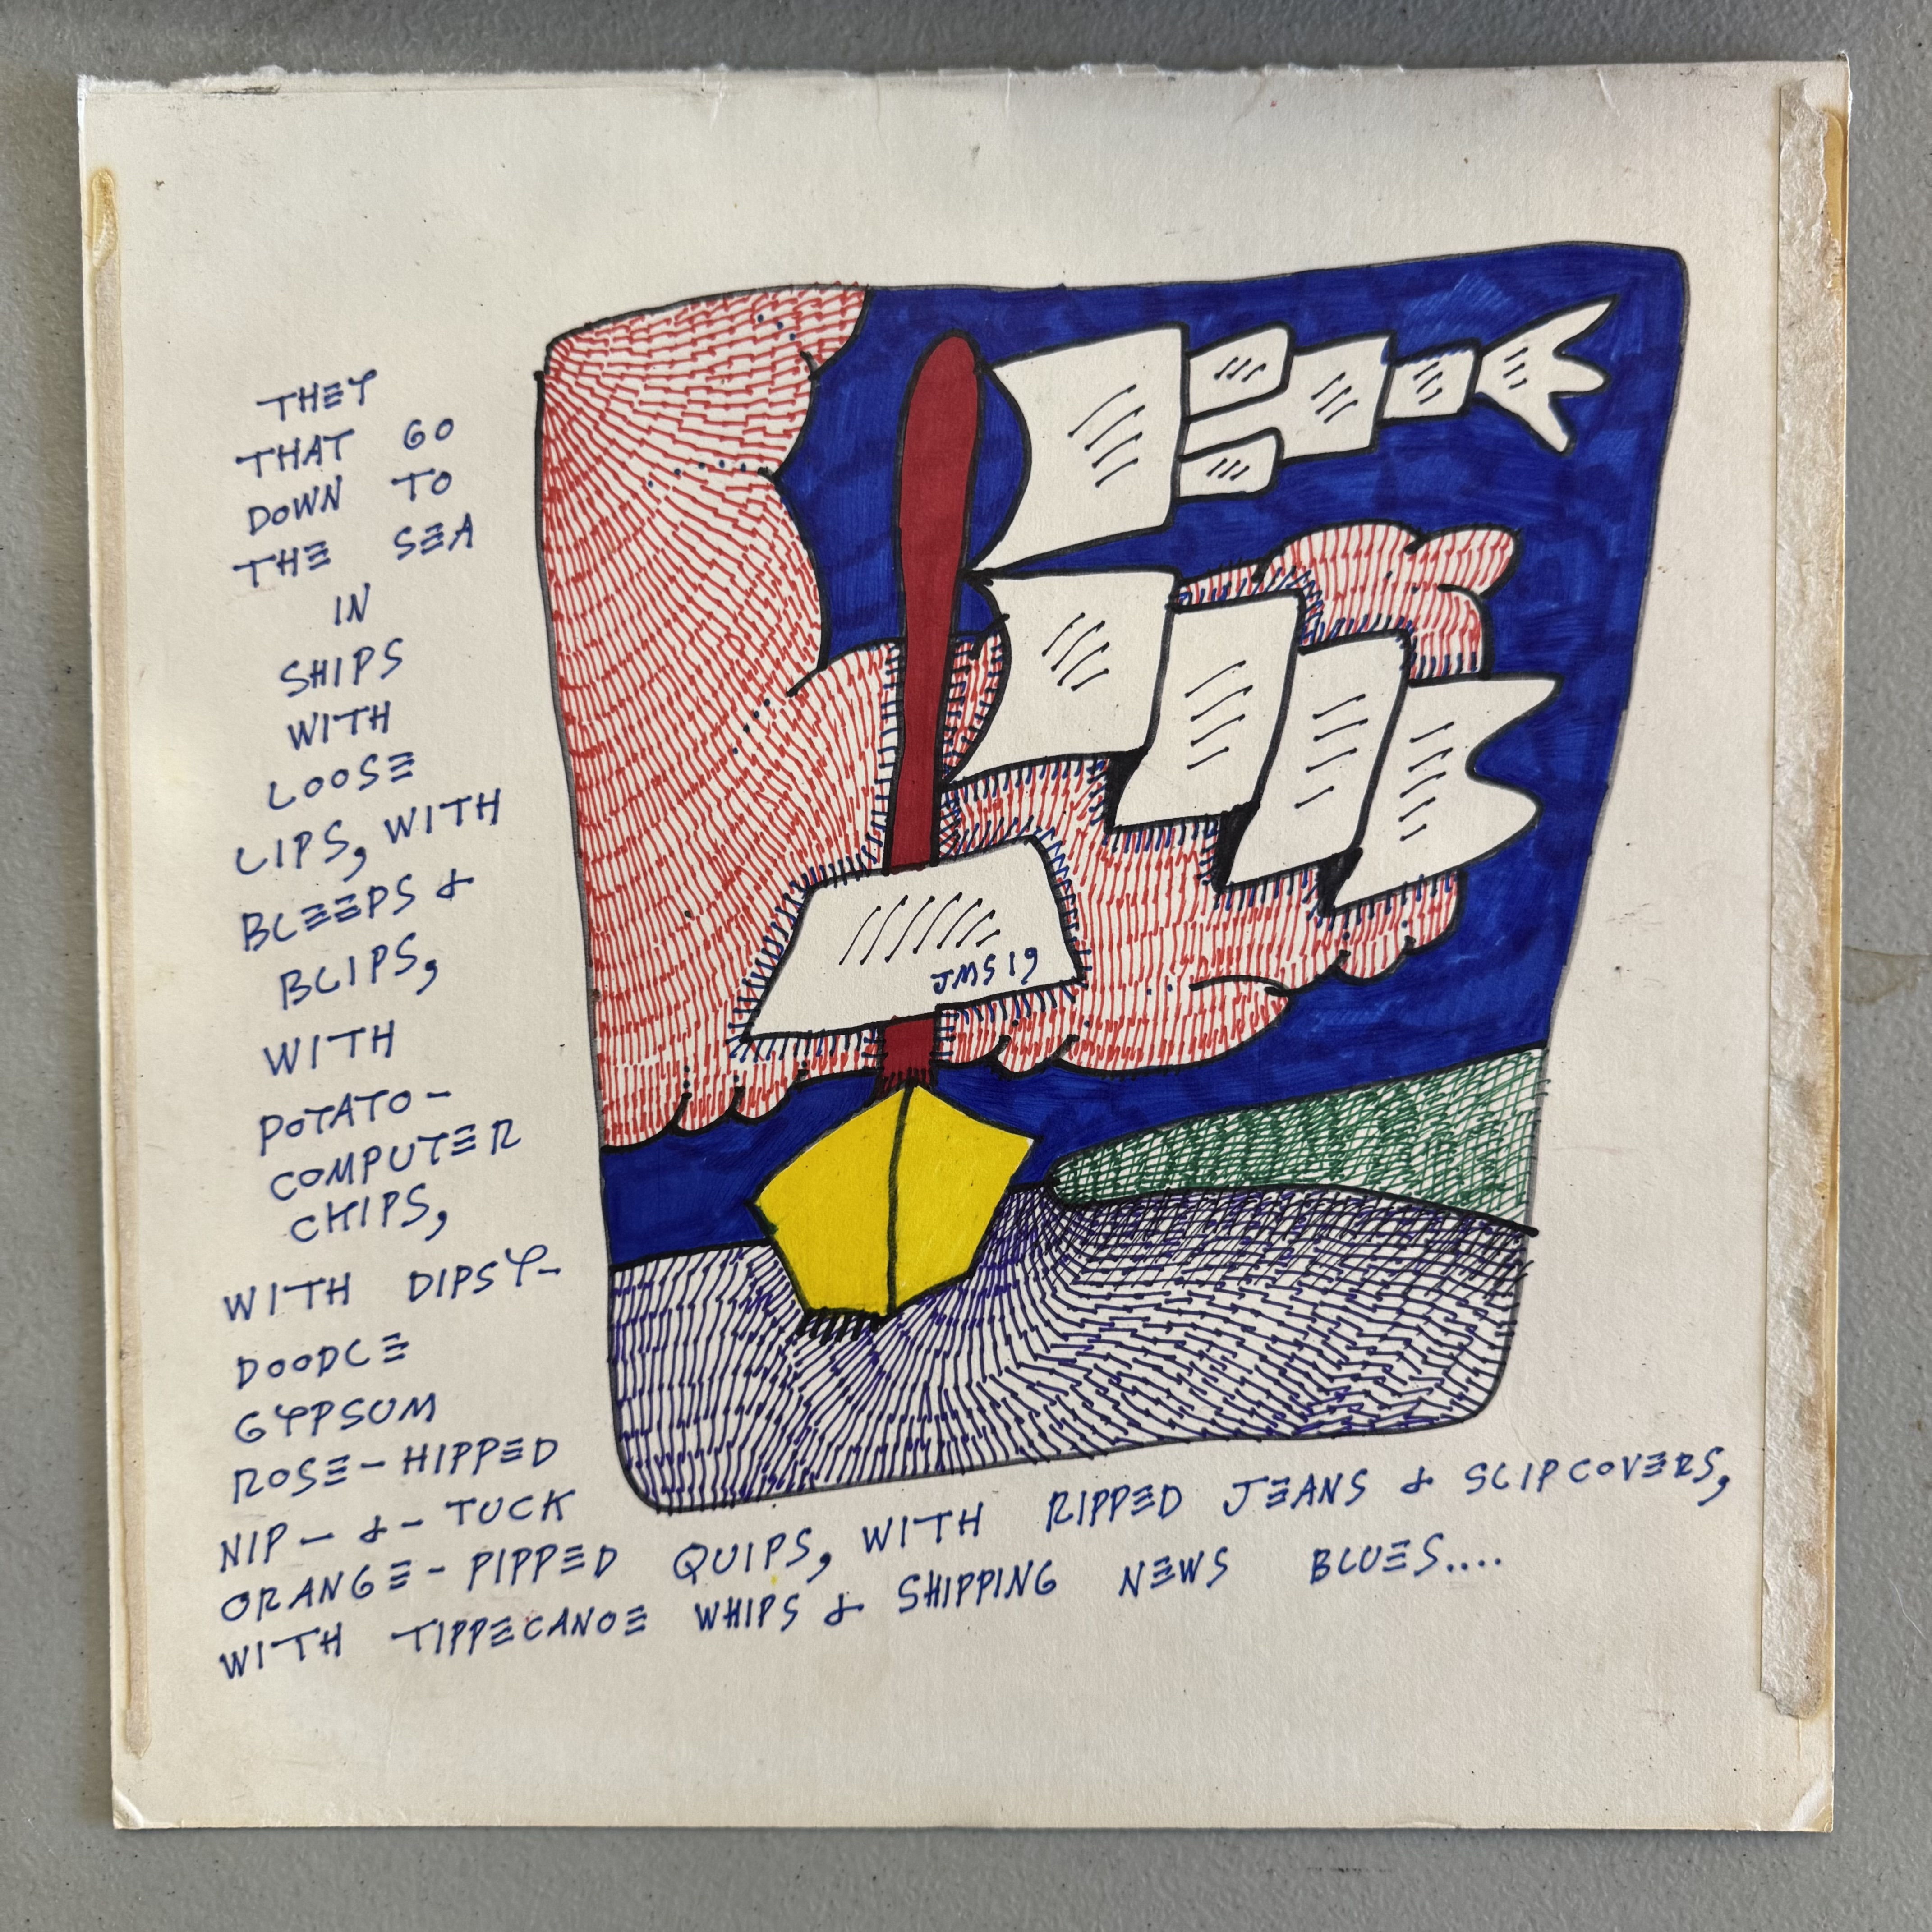 THEY
THAT GO
DOWN TO
THE SEA
IN
SHIPS
WITH
LOOSE
LIPS, WITH
BLEEPS &
BLIPS,
WITH
POTATO-
COMPUTER
CHIPS,
WITH DIPSY-
DOODLE
GYPSUM
ROSE-HIPPED
NIP-&-TUCK
ORANGE-PIPPED QUIPS, WITH RIPPED JEANS & SLIPCOVERS,
WITH TIPPECANOE WHIPS & SHIPPING NEWS BLUES....
JMS 19